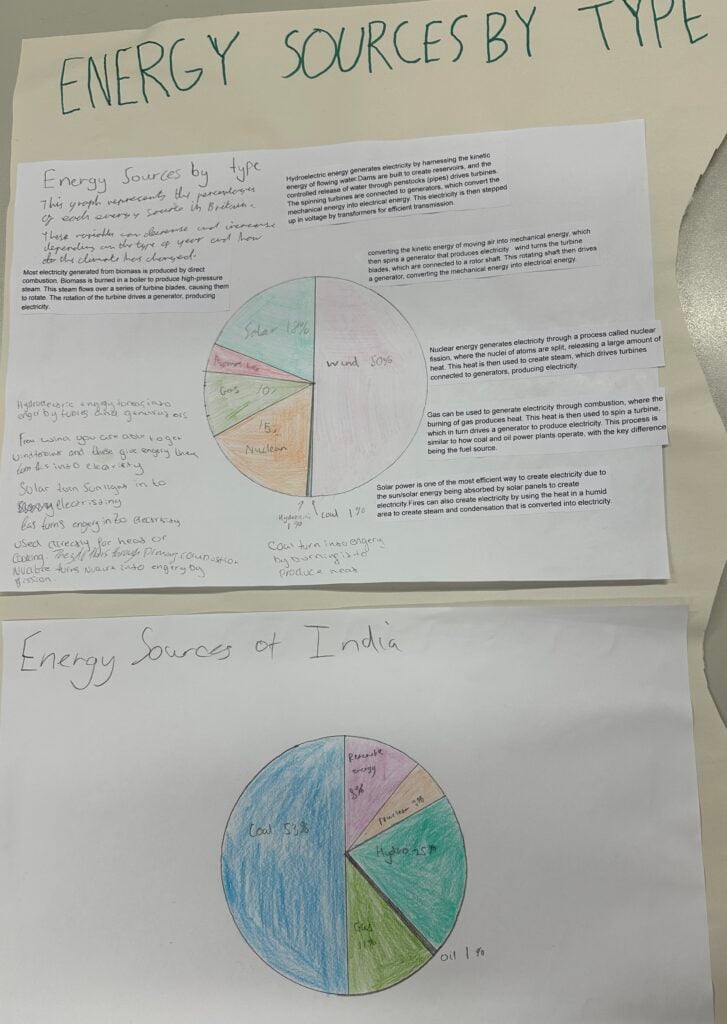 ENERGY SOURCES BY TYPE
Energy Sources by type
This graph represents the percentages
of each energy source in Britain.
These variable can decrease and increase
depending on the type of year and how
the climate has changed.
Hydroelectric energy generates electricity by harnessing the kinetic
energy of flowing water.Dams are built to create reservoirs, and the
controlled release of water through penstocks (pipes) drives turbines.
The spinning turbines are connected to generators, which convert the
mechanical energy into electrical energy. This electricity is then stepped
up in voltage by transformers for efficient transmission.
converting the kinetic energy of moving air into mechanical energy, which
then spins a generator that produces electricity wind turns the turbine
blades, which are connected to a rotor shaft. This rotating shaft then drives
a generator, converting the mechanical energy into electrical energy.
Most electricity generated from biomass is produced by direct
combustion. Biomass is burned in a boiler to produce high-pressure
steam. This steam flows over a series of turbine blades, causing them
to rotate. The rotation of the turbine drives a generator, producing
electricity.
Solar 18%
Wind 50%
Gas 10%
15%
Nuclear
Coal 1%
1%
Nuclear energy generates electricity through a process called nuclear
fission, where the nuclei of atoms are split, releasing a large amount of
heat. This heat is then used to create steam, which drives turbines
connected to generators, producing electricity.
Gas can be used to generate electricity through combustion, where the
burning of gas produces heat. This heat is then used to spin a turbine,
which in turn drives a generator to produce electricity. This process is
similar to how coal and oil power plants operate, with the key difference
being the fuel source.
Solar power is one of the most efficient way to create electricity due to
the sun/solar energy being absorbed by solar panels to create
electricity Fires can also create electricity by using the heat in a humid
area to create steam and condensation that is converted into electricity.
Hydroelectric engery turns into
by and generators
From wind you are able to get
and these give engery then
turn this into
Solar turn Sunlight in to
Gas turns engery into
used directly for heat or
cooking. through
turns into engery by
fission
Coal turn into engery
by burning it to
produce heat
Energy Sources of India
Coal 53%
energy
8%
Nuclear 2%
Hydro 25%
Gas
11%
Oil 1%